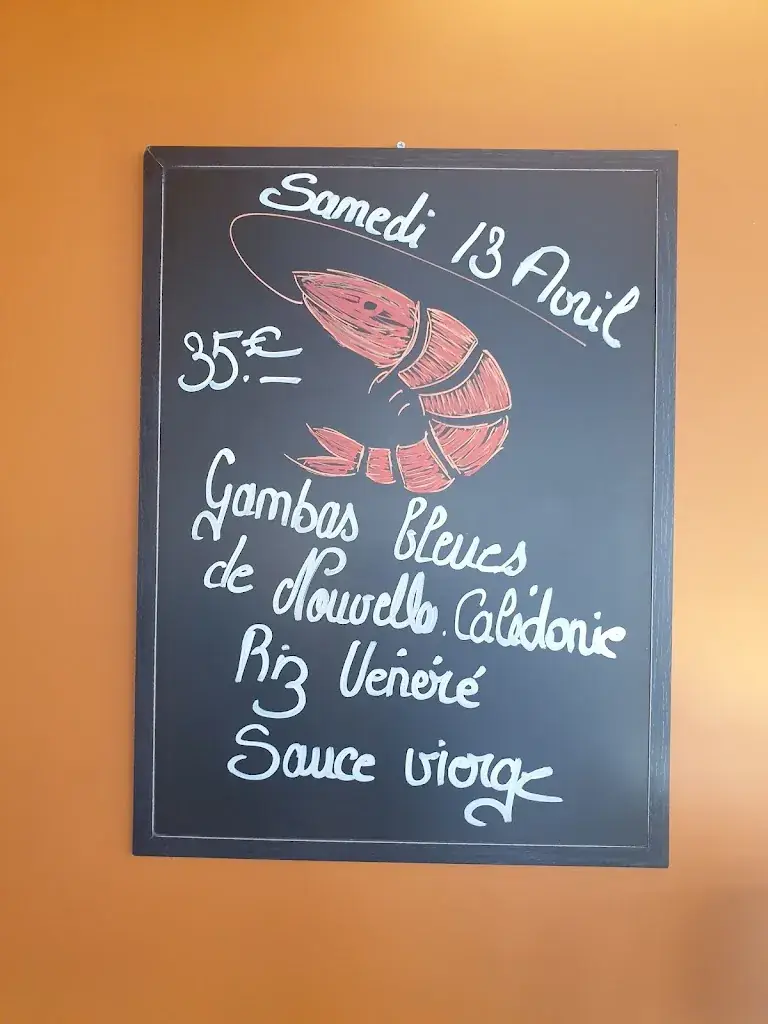 Samedi 13 Avril
35.€
Gambas bleues
de Nouvelle.Calédonie
Riz Vénéré
Sauce vierge